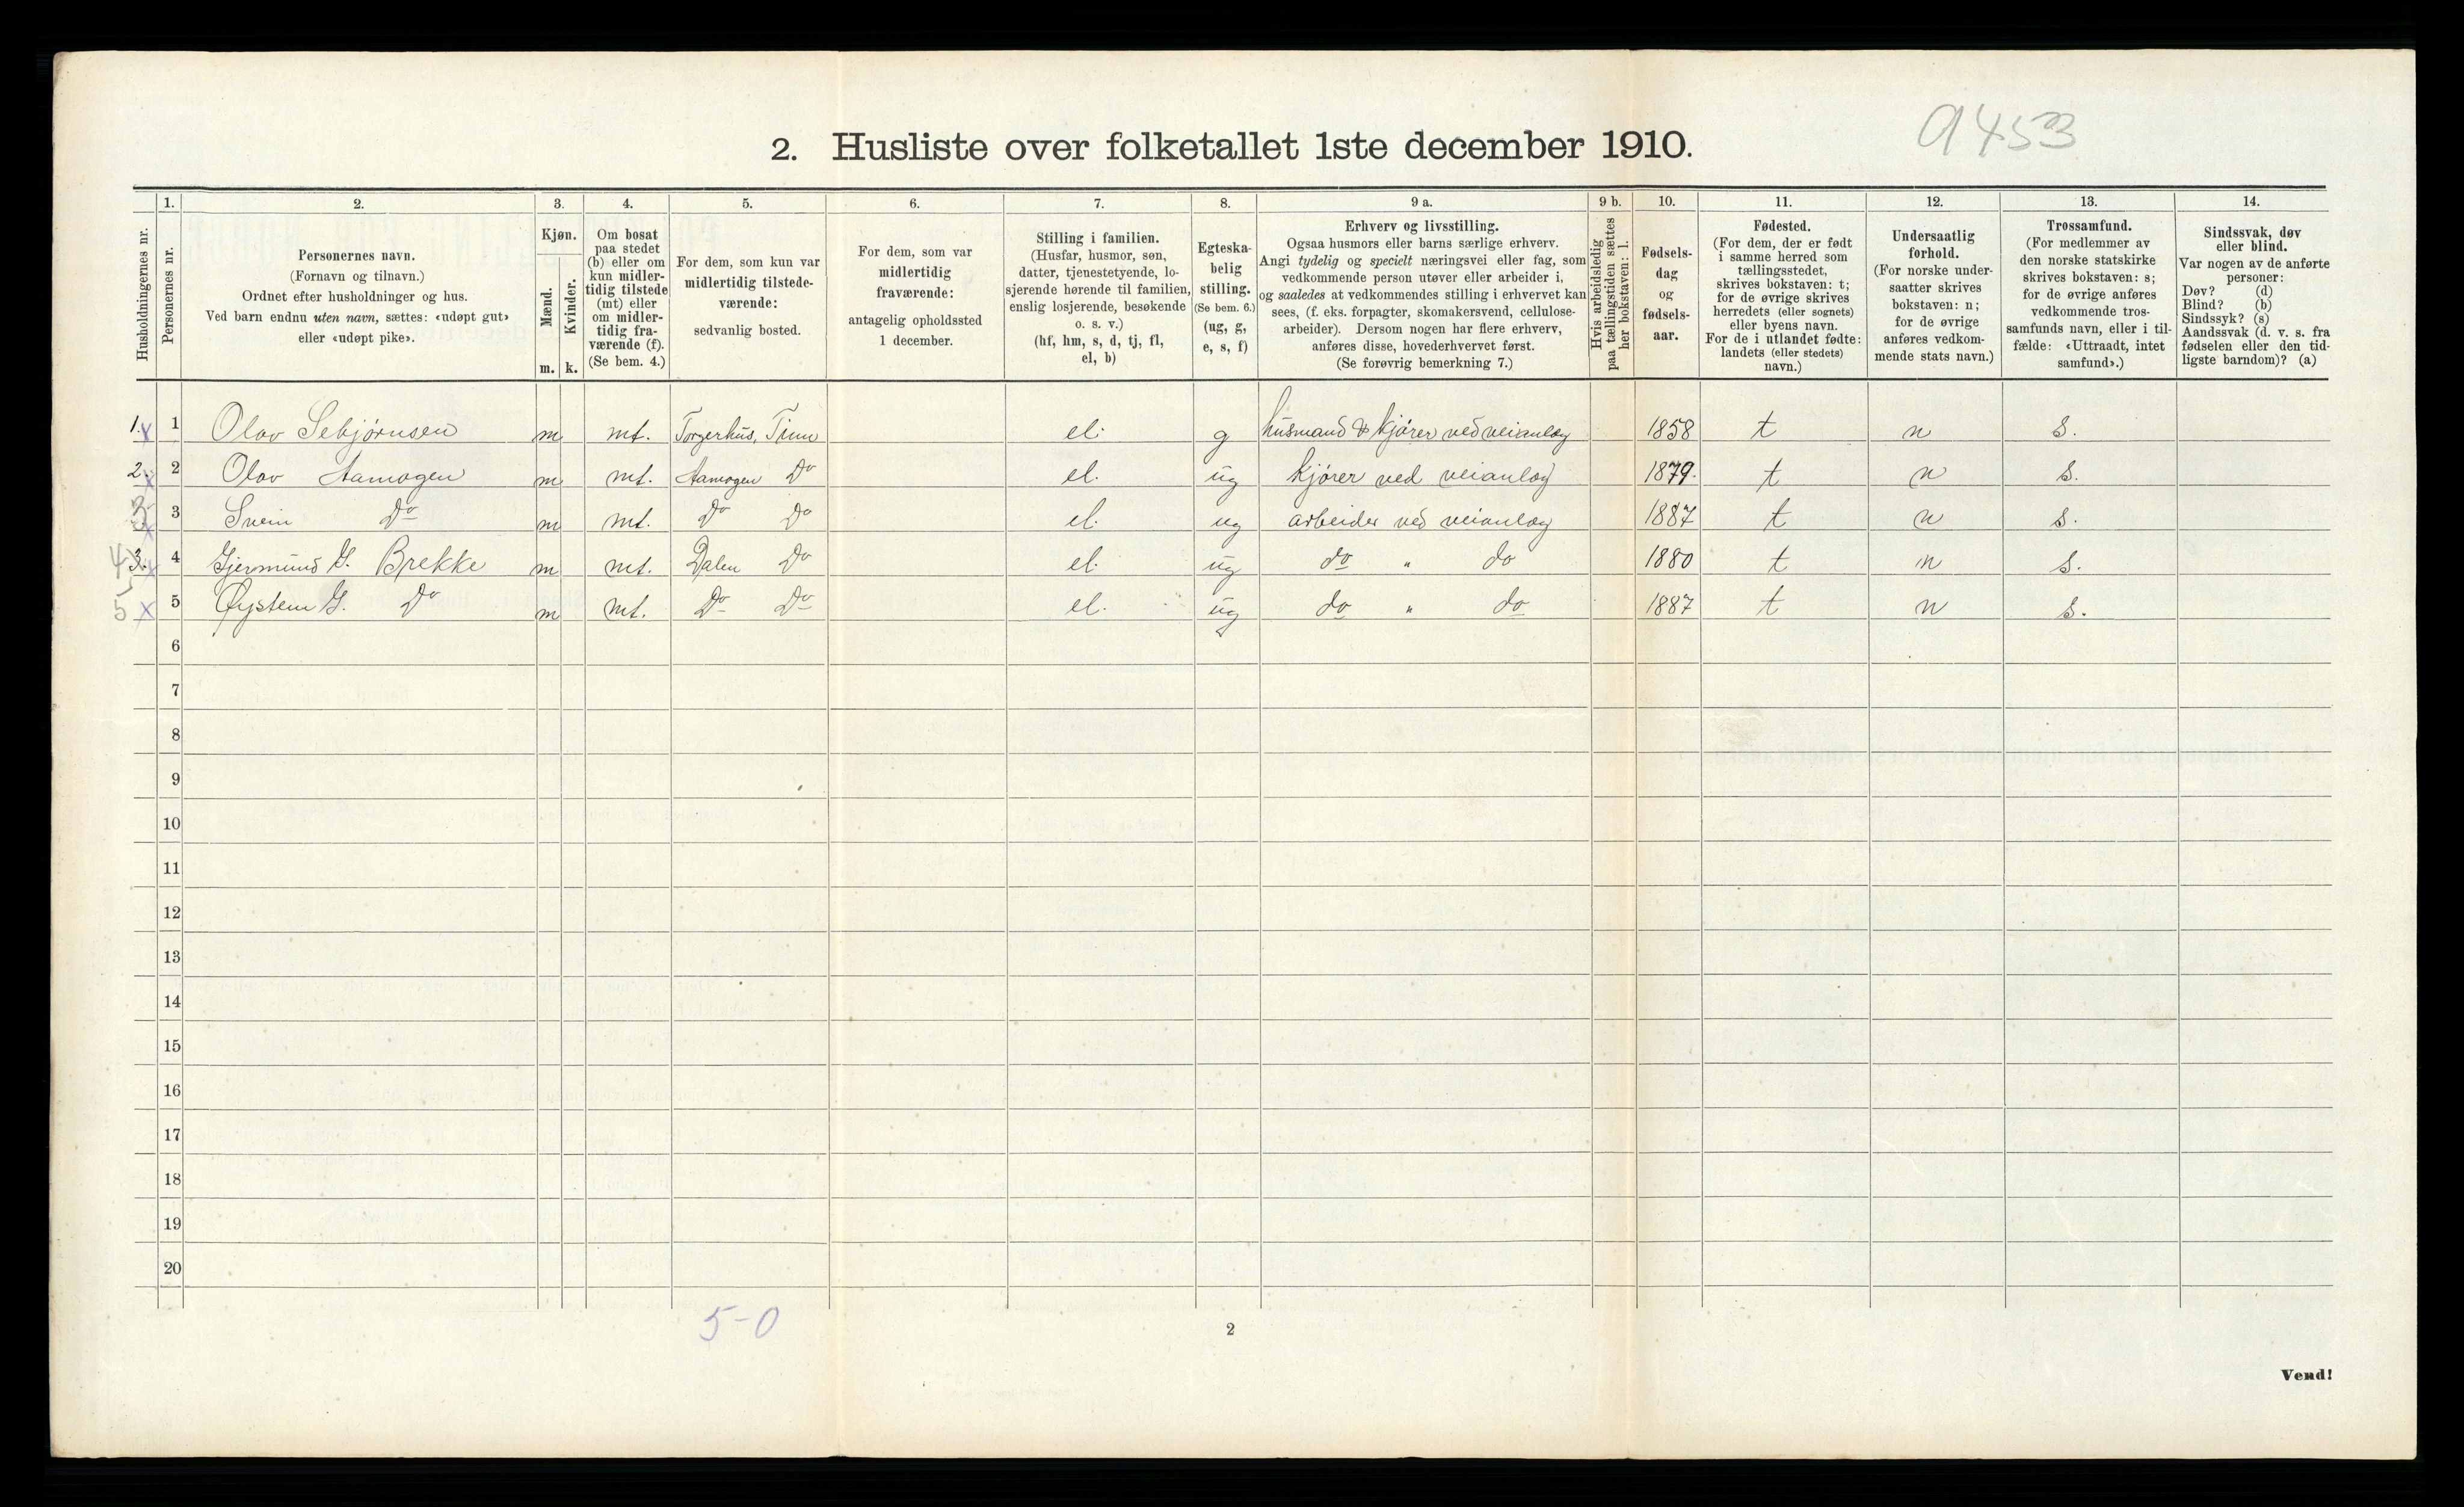 9453
2. Husliste over folketallet 1ste december 1910.
Husholdningernes nr.
1. Personernes nr.
2. Personernes navn. (Fornavn og tilnavn.) Ordnet efter husholdninger og hus. Ved barn endnu uten navn, sættes: «udøpt gut» eller «udøpt pike».
3. Kjøn. Mænd. m. Kvinder. k.
4. Om bosat paa stedet (b) eller om kun midlertidig tilstede (mt) eller om midlertidig fraværende (f). (Se bem. 4.)
5. For dem, som kun var midlertidig tilstedeværende: sedvanlig bosted.
6. For dem, som var midlertidig fraværende: antagelig opholdssted 1 december.
7. Stilling i familien. (Husfar, husmor, søn, datter, tjenestetyende, losjerende hørende til familien, enslig losjerende, besøkende o. s. v.) (hf, hm, s, d, tj, fl, el, b)
8. Egteskabelig stilling. (Se bem. 6.) (ug, g, e, s, f)
9 a. Erhverv og livsstilling. Ogsaa husmors eller barns særlige erhverv. Angi tydelig og specielt næringsvei eller fag, som vedkommende person utøver eller arbeider i, og saaledes at vedkommendes stilling i erhvervet kan sees, (f. eks. forpagter, skomakersvend, cellulosearbeider). Dersom nogen har flere erhverv, anføres disse, hovederhvervet først. (Se forøvrig bemerkning 7.)
9 b. Hvis arbeidsledig paa tællingstiden sættes her bokstaven: l.
10. Fødselsdag og fødselsaar.
11. Fødested. (For dem, der er født i samme herred som tællingsstedet, skrives bokstaven: t; for de øvrige skrives herredets (eller sognets) eller byens navn. For de i utlandet fødte: landets (eller stedets) navn.)
12. Undersaatlig forhold. (For norske undersaatter skrives bokstaven: n; for de øvrige anføres vedkommende stats navn.)
13. Trossamfund. (For medlemmer av den norske statskirke skrives bokstaven: s; for de øvrige anføres vedkommende trossamfunds navn, eller i tilfælde: «Uttraadt, intet samfund».)
14. Sindssvak, døv eller blind. Var nogen av de anførte personer: Døv? (d) Blind? (b) Sindssyk? (s) Aandssvak (d. v. s. fra fødselen eller den tidligste barndom)? (a)
1. x 1 Olav Sebjørnsen m mt. Torgerhus, Tinn el. g husmand & kjører ved veianlæg 1858 t n s.
2. x 2 Olav Aamogen m mt. Aamogen Do el. ug kjører ved veianlæg 1879. t n s.
3 x 3 Svein Do m mt. Do Do el. ug arbeider ved veianlæg 1887 t n s.
4 3. x 4 Gjermund G. Brekke m mt. Dalen Do el. ug do " do 1880 t n s.
5 x 5 Øystein G. Do m mt. Do Do el. ug do " do 1887 t n s.
6
7
8
9
10
11
12
13
14
15
16
17
18
19
20
5-0
2
Vend!